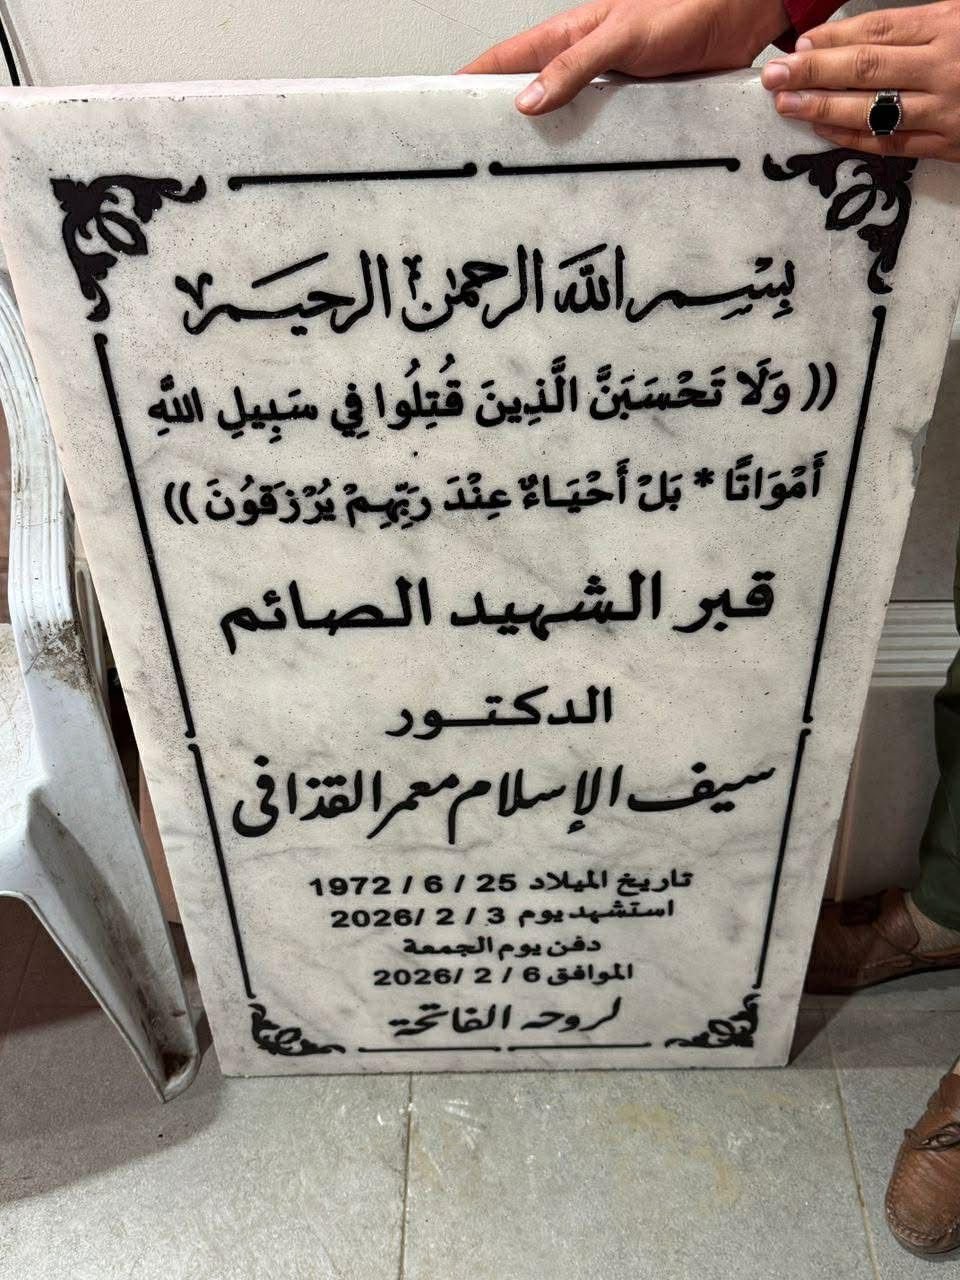 بِسْمِ اللَّه الرحمن الرحيم
(( وَلَا تَحْسَبَنَّ الَّذِينَ قُتِلُوا فِي سَبِيلِ اللَّهِ
أَمْوَاتًا * بَلْ أَحْيَاءٌ عِنْدَ رَبِّهِمْ يُرْزَقُونَ ))
قبر الشهيد الصائم
الدكتور
سيف الإسلام معمر القذافى
تاريخ الميلاد 25 / 6 / 1972
استشهد يوم 3 / 2 /2026
دفن يوم الجمعة
الموافق 6 / 2 /2026
لروحه الفاتحة